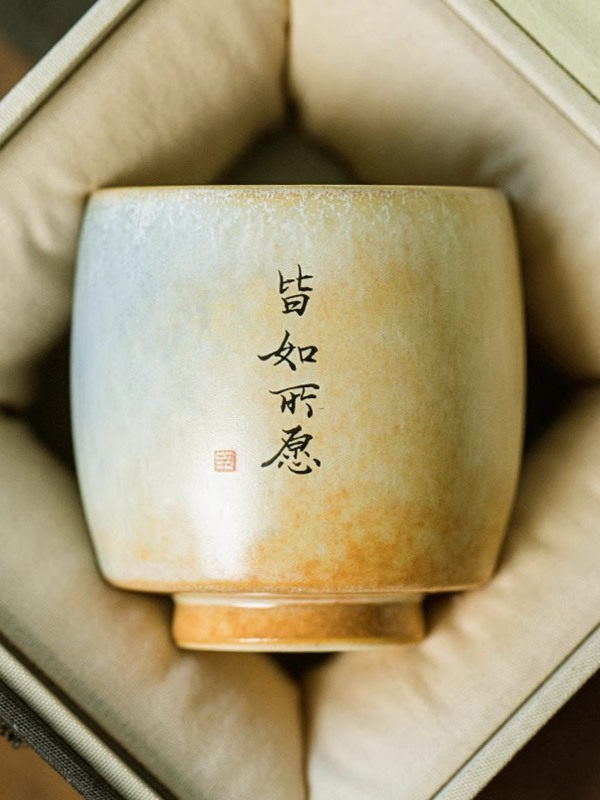 皆如所愿